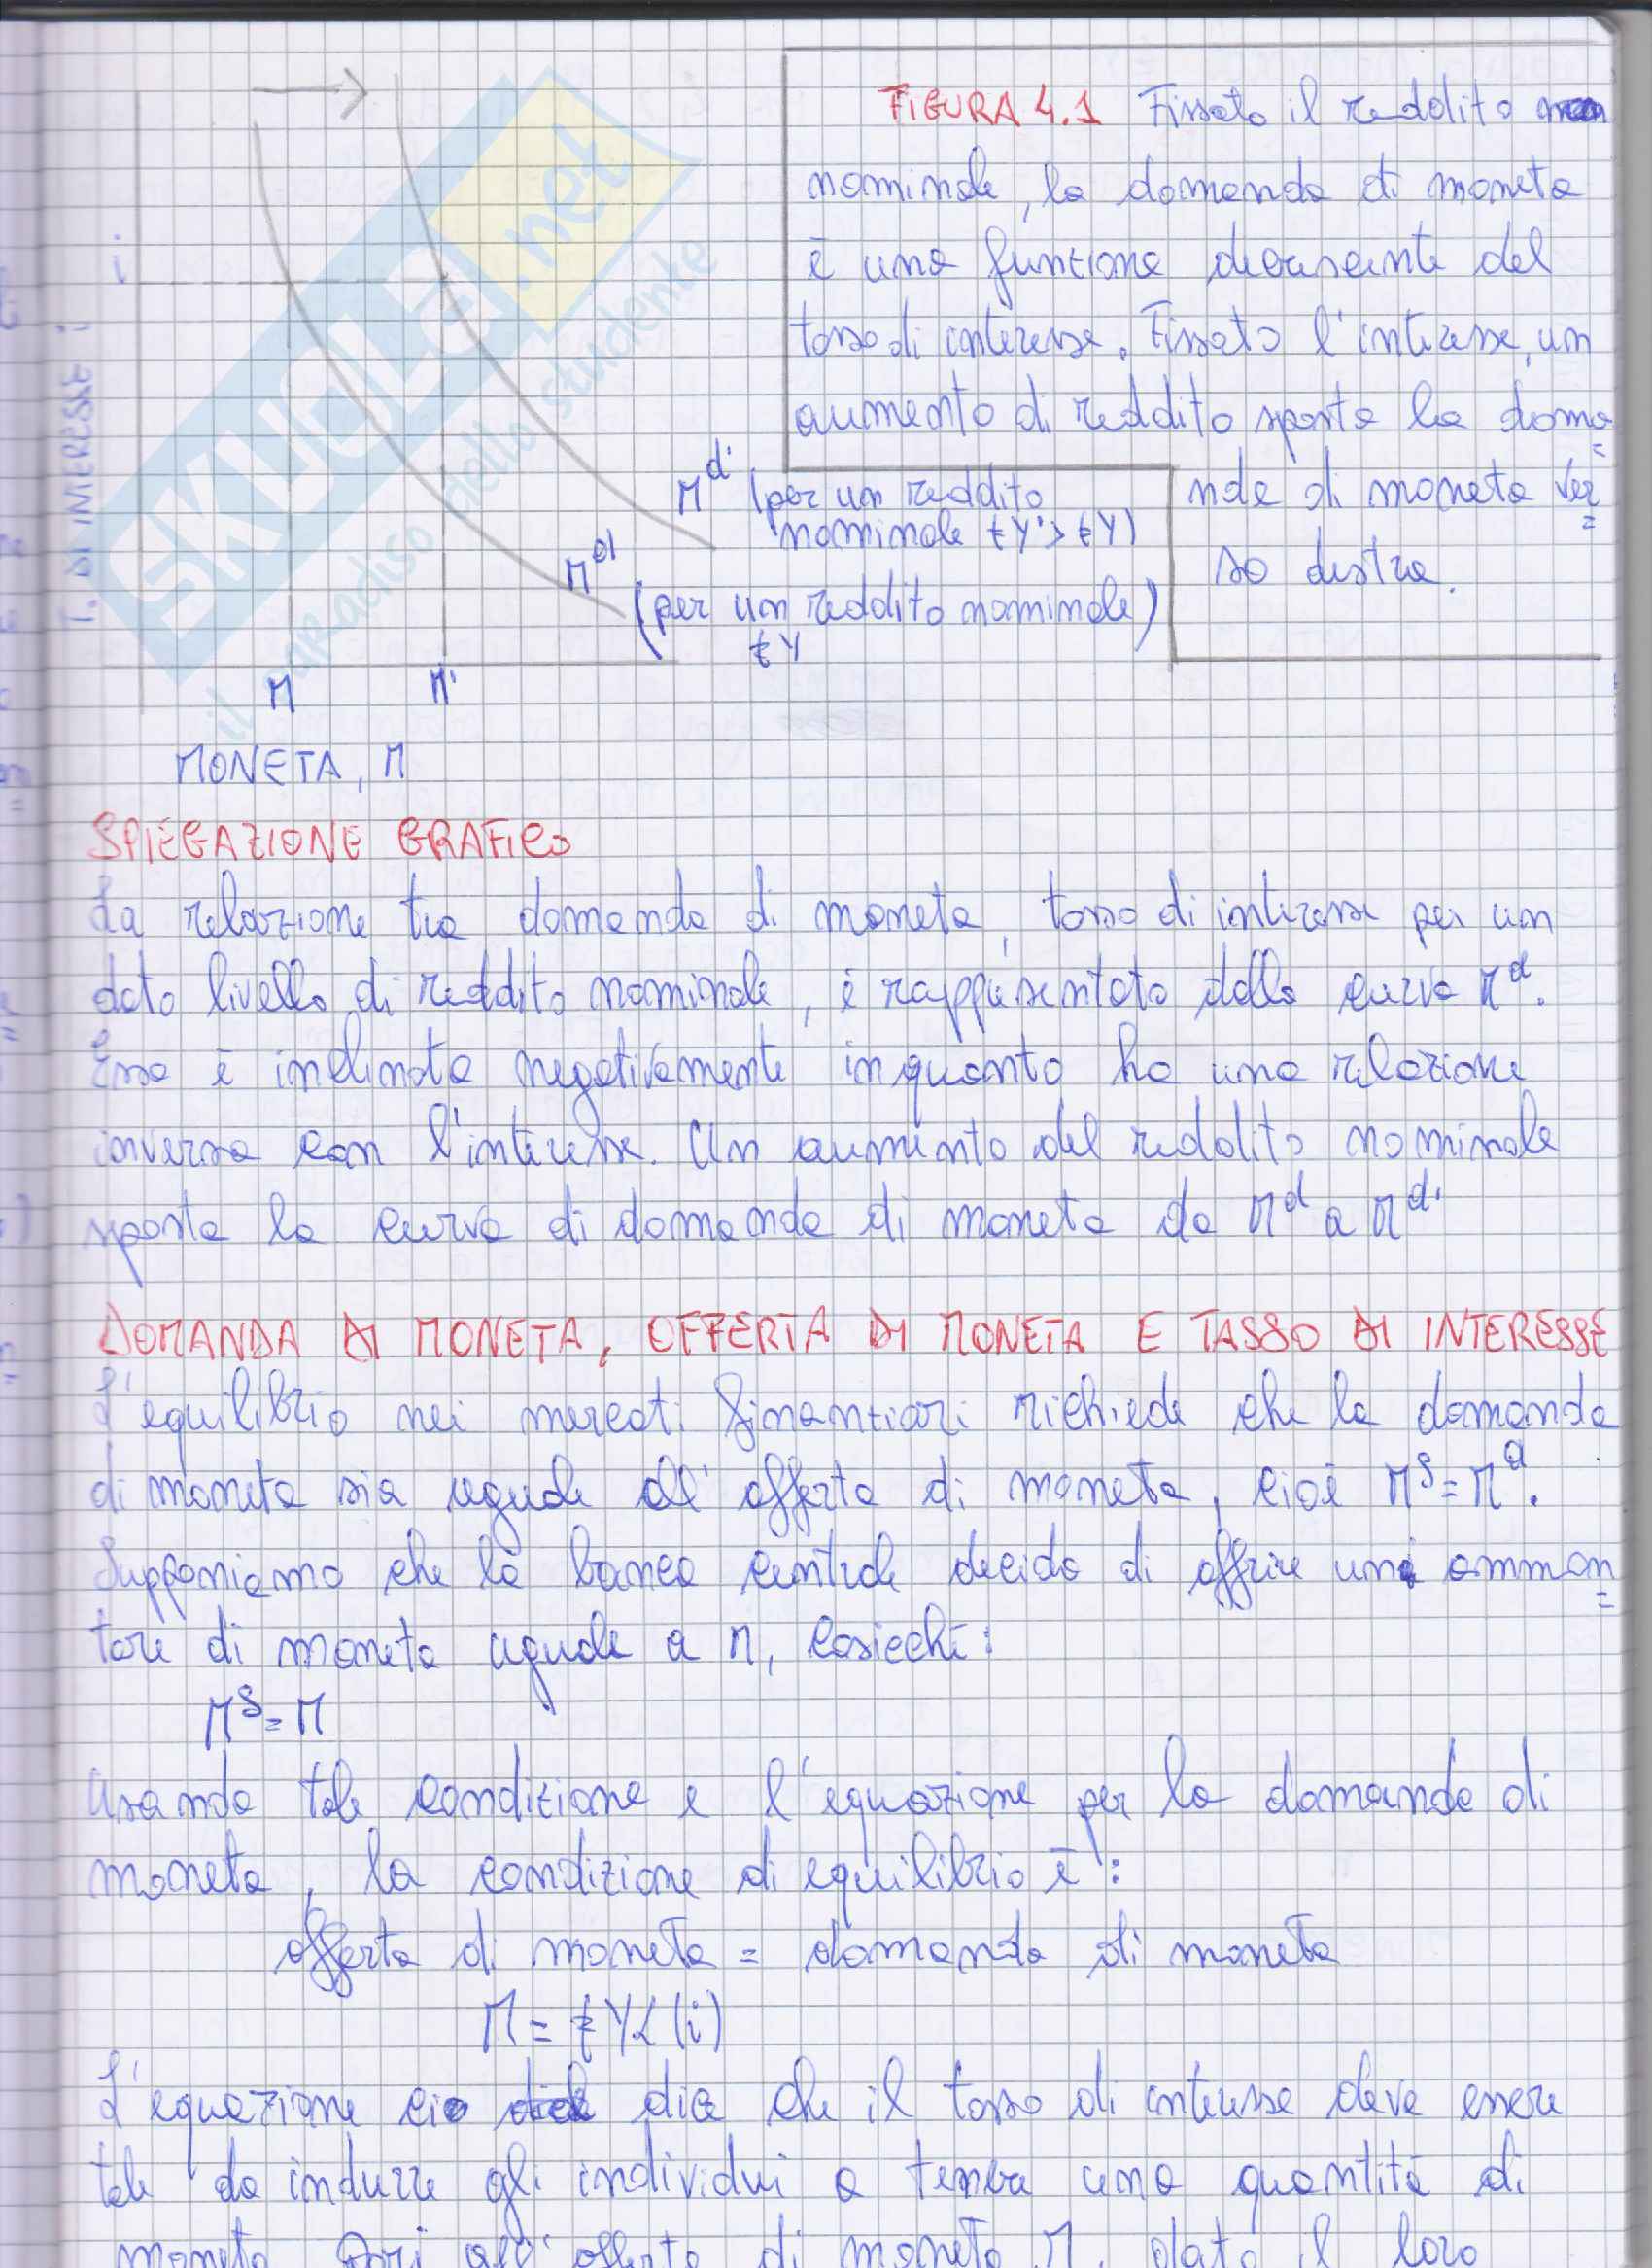 FIGURA 4.1 Fissato il reddito
nominale, la domanda di moneta
è una funzione decrescente del
tasso di interesse. Fissato l'interesse, un
aumento di reddito sposta la doma=
nda di moneta ver=
so destra.
i
T. DI INTERESSE i
M^d' (per un reddito
nominale €Y'>€Y)
M^d
(per un reddito nominale)
€Y
M M'
MONETA, M
SKUOLA.net
il paradiso dello studente
SPIEGAZIONE GRAFICO
La relazione tra domanda di moneta, tasso di interesse per un
dato livello di reddito nominale, è rappresentata dalla curva M^d.
Essa è inclinata negativamente in quanto ha una relazione
inversa con l'interesse. Un aumento del reddito nominale
sposta la curva di domanda di moneta da M^d a M^d'
DOMANDA DI MONETA, OFFERTA DI MONETA E TASSO DI INTERESSE
L'equilibrio nei mercati finanziari richiede che la domanda
di moneta sia uguale all'offerta di moneta, cioè M^s=M^d.
Supponiamo che la banca centrale decida di offrire un ammon=
tare di moneta uguale a M, cosicchè:
M^s=M
Usando tale condizione e l'equazione per la domanda di
moneta, la condizione di equilibrio è:
offerta di moneta = domanda di moneta
M=€YL(i)
L'equazione ci dice che il tasso di interesse deve essere
tale da indurre gli individui a tenere una quantità di
moneta pari all'offerta di moneta M, dato il loro